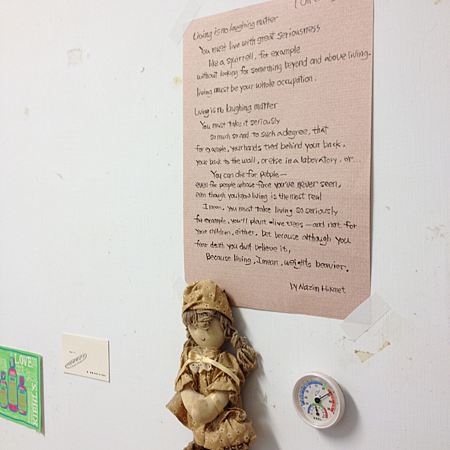 Living is no laughing matter
You must live with great seriousness
like a squirrel, for example
without looking for something beyond and above living.
living must be your whole occupation.
Living is no laughing matter
You must take it seriously
so much so and to such a degree, that
for example, your hands tied behind your back,
your back to the wall, or else in a laboratory, or...
You can die for people—
even for people whose face you've never seen,
even though you know living is the most real
I mean, you must take living so seriously
for example, you'll plant olive trees — and not for
your children, either, but because although you
fear death you don't believe it,
Because living, I mean, weights heavier.
by Nazim Hikmet
LOVE
KIEHL'S